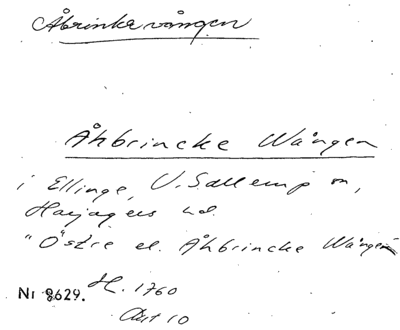 Åbrinka vången
Åhbrincke Wången
i Ellinge, V. Sallerup sn,
Harjagers hd.
"Östre el. Åhbrincke Wången
Nr 8629. H. 1760
Akt 10